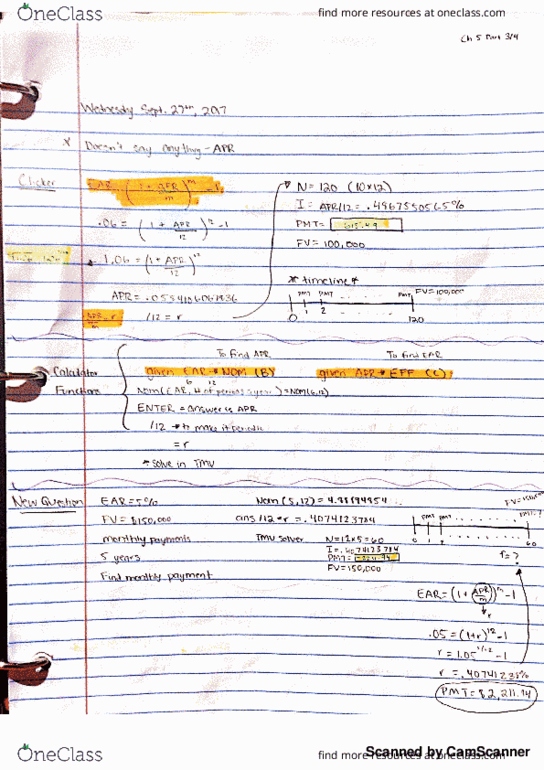 OneClass
find more resources at oneclass.com
Ch 5 Part 3/4
Wednesday Sept. 27th, 2017
* Doesn't say anything - APR
Clicker
EAR = (1 + APR/m)^m - 1
.06 = (1 + APR/12)^12 - 1
* 1.06 = (1 + APR/12)^12
APR/m = r
/12 = r
N = 120 (10x12)
I = APR/12 = .4867550565%
PMT =
FV = 100,000
* timeline *
PMT PMT PMT FV=100,000
0 1 2 120
Calculator
Functions
To find APR
given EAR → NOM (B)
6 12
Nom(EAR, # of periods a year) = NOM(6,12)
ENTER = answer is APR
/12 → to make it periodic
= r
* solve in TMV
To find EAR
given APR → EFF (C)
New Question
EAR = 5%
FV = $150,000
monthly payments
5 years
Find monthly payment
Nom (5,12) =
ans/12 = r = .4074123784
TMV solver N=12x5=60
I = .4074123784
PMT =
FV = 150,000
PMT PMT
0 1 2 60
r = ?
EAR = (1 + APR/m)^m - 1
r
.05 = (1+r)^12 - 1
r = 1.05^1/12 - 1
r = .4074123%
PMT = $2,211.14
OneClass
find more resources at oneclass.com
Scanned by CamScanner